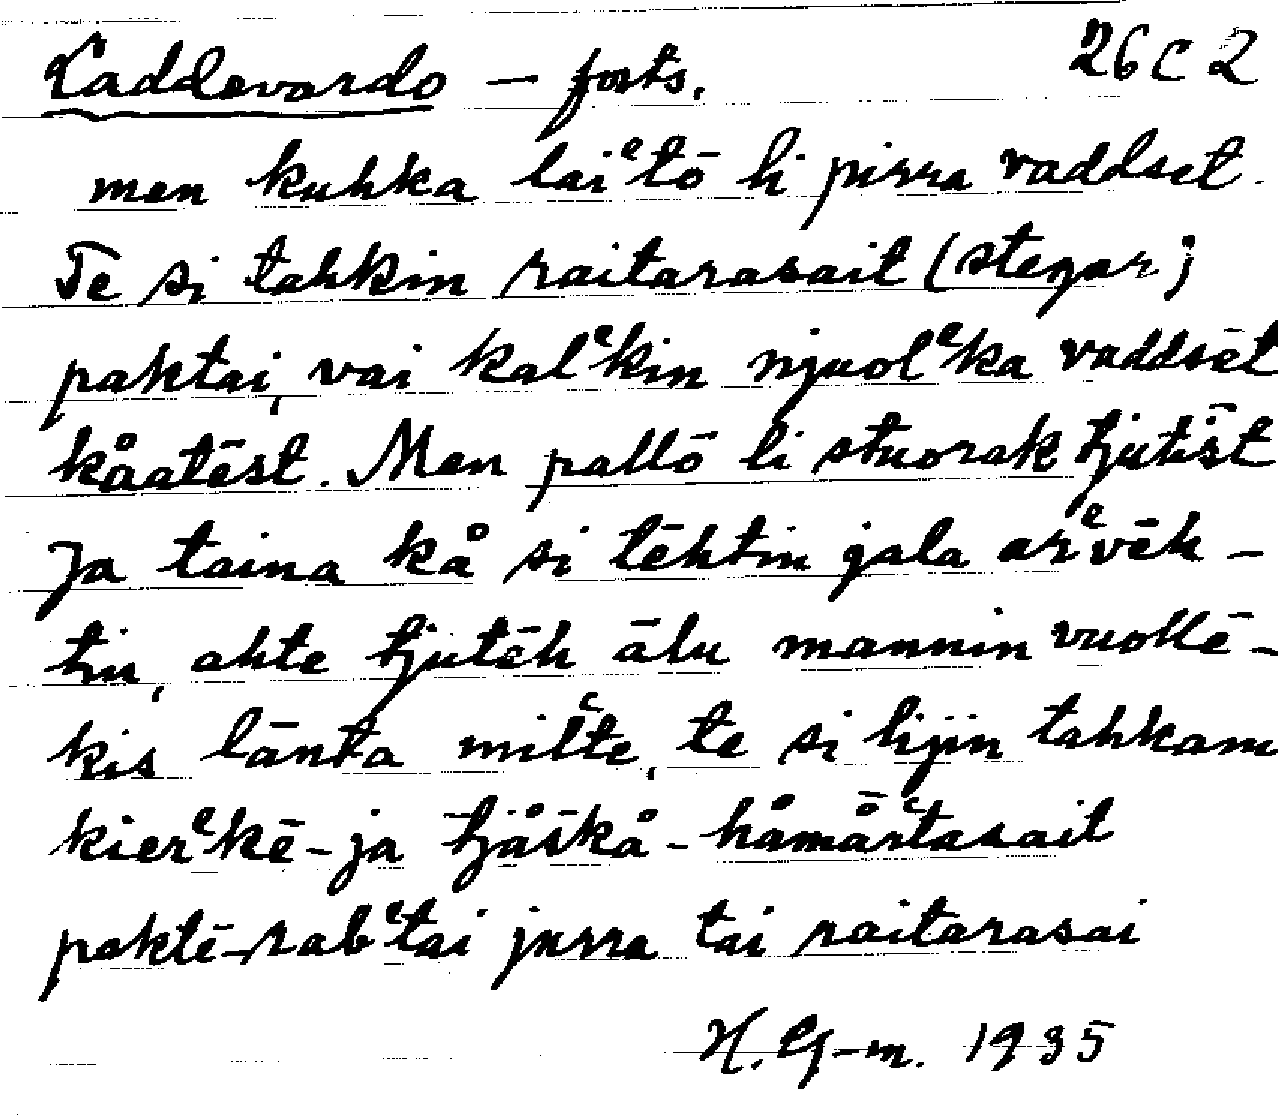 Laddevardo – forts. 26 C 2
men kuhka laiᵉtō li pirra vaddset.
Te si tahkin raitarasait (stegar)
paktai, vai kalᵉkin njuolᵉka vaddsēt
kåatēst. Men pallō li stuorak tjutēst
Ja taina kå si tēhtin gala arᵉvēh-
tin, ahte tjutēh ālu mannin vuollē-
kis lānta milᵉte, te si lijin tahkam
kierᵉkē-ja tjåskå-håmåᵉtasait
paktē-rabᵉtai jurra tai raitarasai
H. G-m. 1935